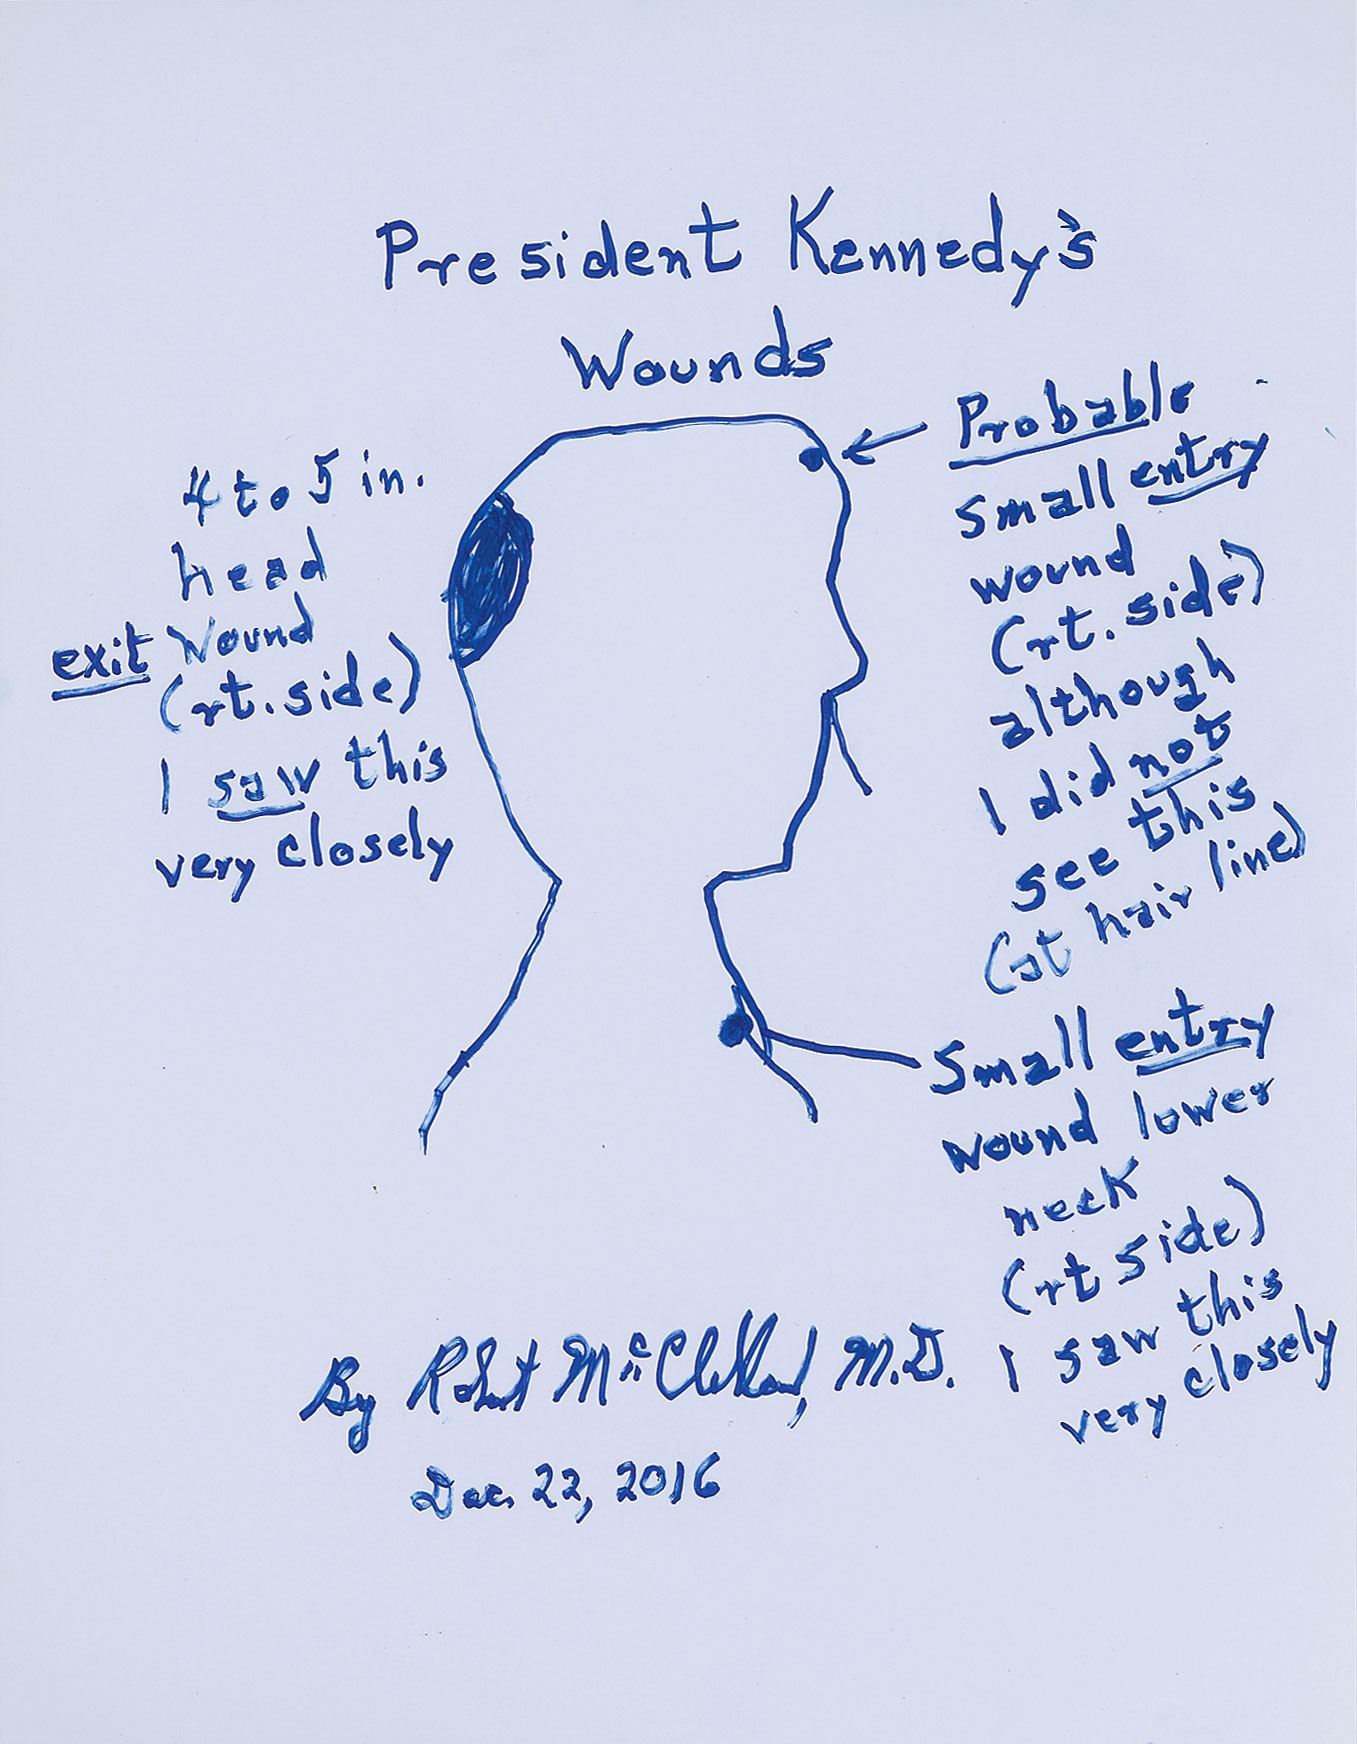 President Kennedy's
Wounds
4 to 5 in.
head
exit Wound
(rt. side)
I saw this
very closely
Probable
small entry
wound
(rt. side)
although
I did not
see this
(at hair line)
Small entry
wound lower
neck
(rt side)
I saw this
very closely
By Robert McClelland, M.D.
Dec. 22, 2016